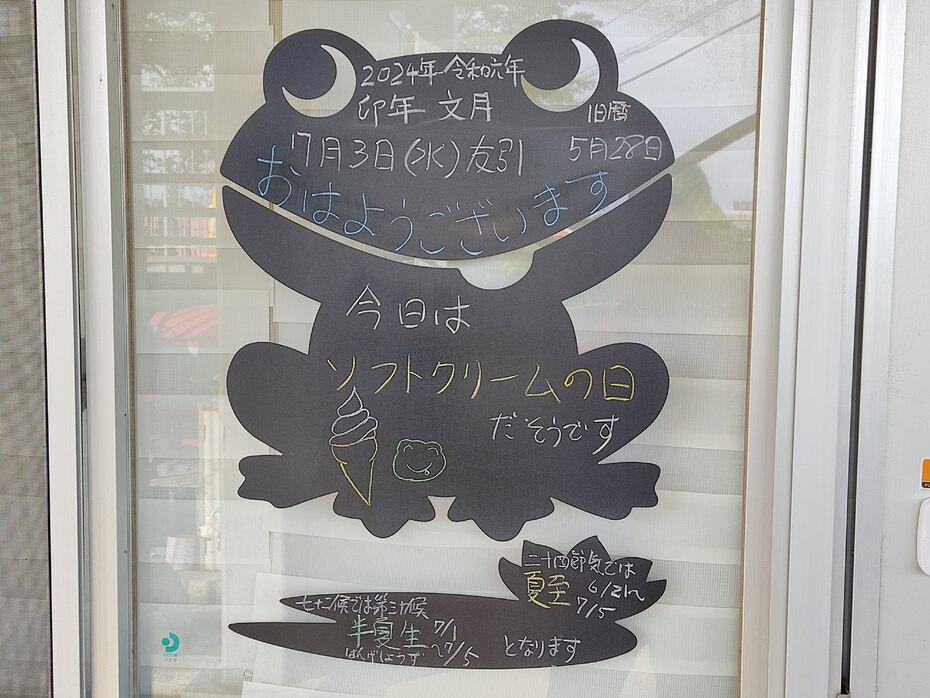 2024年 令和六年
卯年 文月
旧暦
7月3日(水)友引
5月28日
おはようございます
今日は
ソフトクリームの日
だそうです
二十四節気では
夏至 6/21〜
7/5
七十二候では第三十候
半夏生 7/1
〜7/5
はんげしょうず
となります